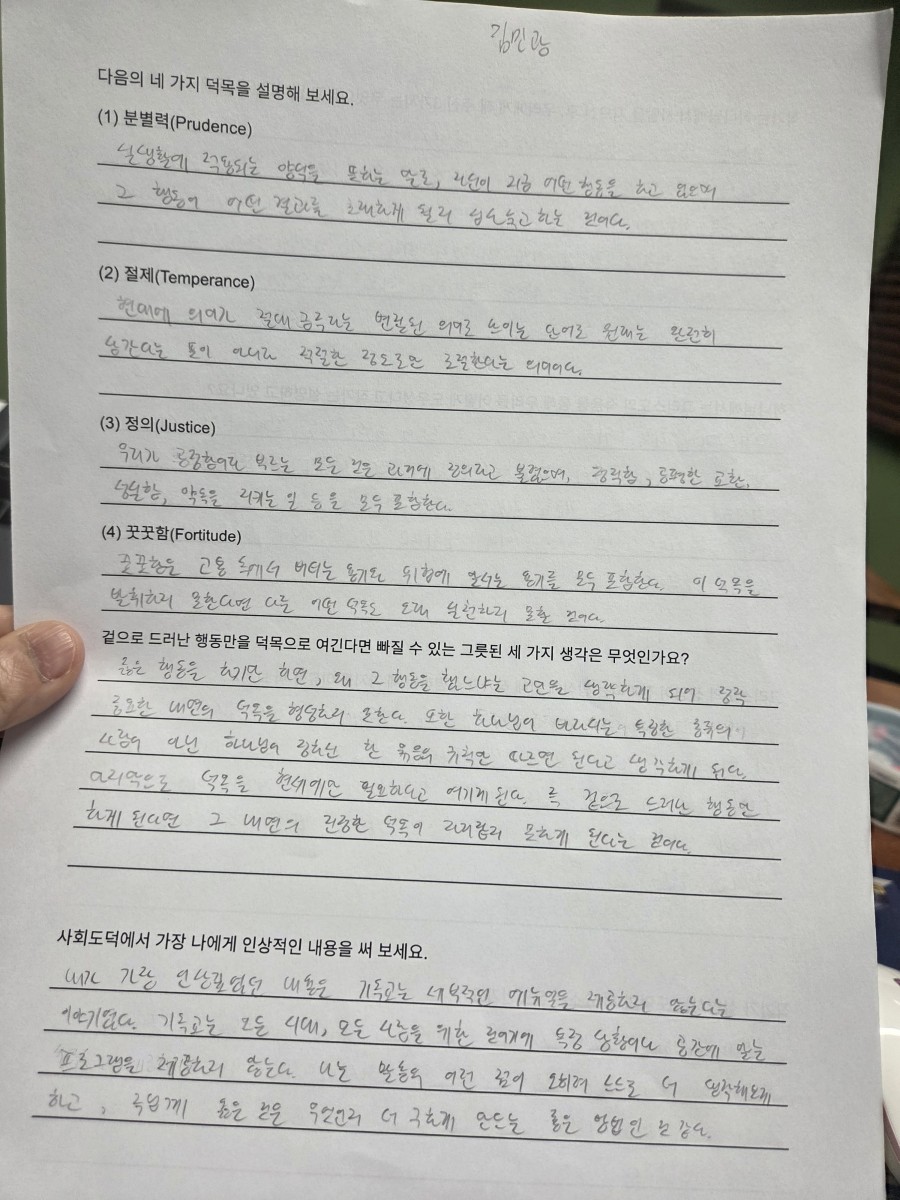 김민광
다음의 네 가지 덕목을 설명해 보세요.
(1) 분별력(Prudence)
실생활에 적용되는 양덕을 뜻하는 말로, 자신이 지금 어떤 행동을 하고 있으며
그 행동이 어떤 결과를 초래하게 될지 심사숙고하는 것이다.
(2) 절제(Temperance)
현대에 의미가 절대 금주라는 변질된 의미로 쓰이는 단어로 원래는 완전히
삼간다는 뜻이 아니라 적절한 정도로만 조절한다는 의미이다.
(3) 정의(Justice)
우리가 공정함이라 부르는 모든 것은 과거에 정의라고 불렸으며, 정직함, 공평한 교환,
성실함, 약속을 지키는 일 등을 모두 포함한다.
(4) 꿋꿋함(Fortitude)
꿋꿋함은 고통 속에서 버티는 용기와 위험에 맞서는 용기를 모두 포함한다. 이 덕목을
발휘하지 못한다면 다른 어떤 덕목도 오래 실천하지 못할 것이다.
겉으로 드러난 행동만을 덕목으로 여긴다면 빠질 수 있는 그릇된 세 가지 생각은 무엇인가요?
옳은 행동을 하기만 하면, 왜 그 행동을 했느냐는 고민을 생략하게 되어 정작
중요한 내면의 덕목을 형성하지 못한다. 또한 하나님이 바라시는 특정한 종류의
사람이 아닌 하나님이 정하신 한 묶음의 규칙만 따르면 된다고 생각하게 된다.
마지막으로 덕목을 현세에만 필요하다고 여기게 된다. 즉 겉으로 드러난 행동만
하게 된다면 그 내면의 진정한 덕목이 자리잡지 못하게 된다는 것이다.
사회도덕에서 가장 나에게 인상적인 내용을 써 보세요.
내가 가장 인상깊었던 내용은 기독교는 세부적인 메뉴얼을 제공하지 않는다는
이야기였다. 기독교는 모든 시대, 모든 사람을 위한 것이기에 특정 상황이나 공간에 맞는
프로그램을 제공하지 않는다. 나는 말씀의 이런 점이 오히려 스스로 더 생각해보게
하고, 주님께 옳은 것은 무엇인지 더 구하게 만드는 좋은 방법인 것 같다.